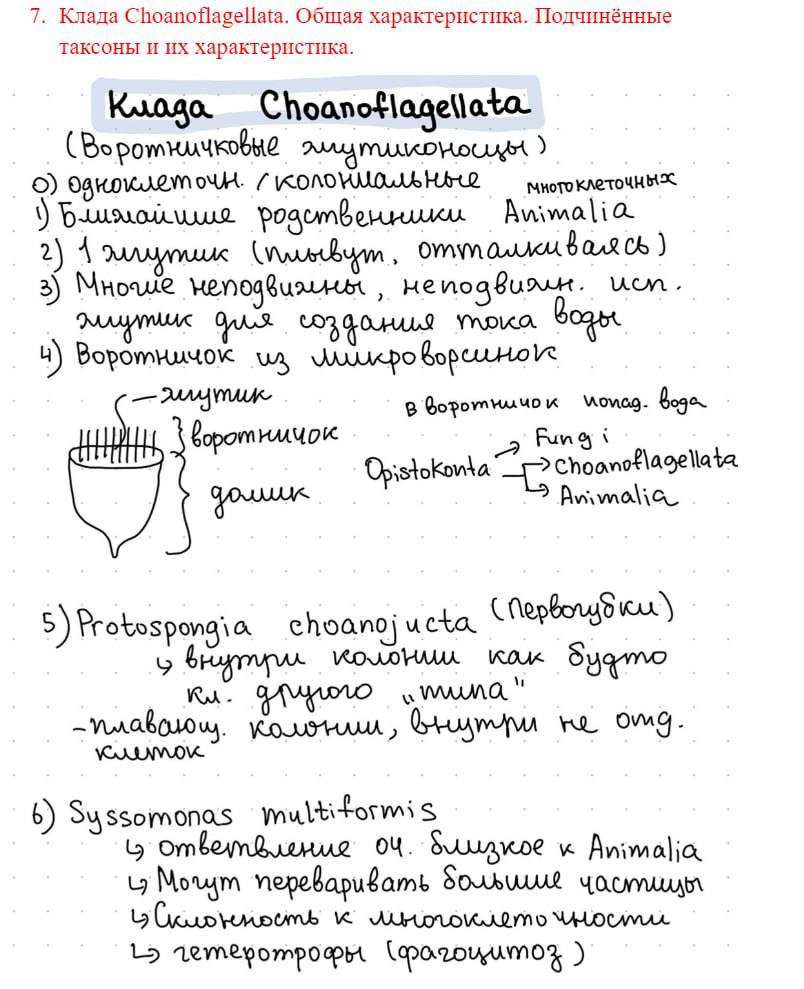 7. Клада Choanoflagellata. Общая характеристика. Подчинённые
таксоны и их характеристика.
Клада Choanoflagellata
(Воротничковые жгутиконосцы)
0) одноклеточн. / колониальные
многоклеточных
1) Ближайшие родственники Animalia
2) 1 жгутик (плывут, отталкиваясь)
3) Многие неподвижны, неподвижн. исп.
жгутик для создания тока воды
4) Воротничок из микроворсинок
жгутик
в воротничок попад. вода
воротничок
Fungi
Opistokonta
Choanoflagellata
домик
Animalia
5) Protospongia choanojucta (Первогубки)
↳ внутри колонии как будто
кл. другого "типа"
- плавающ. колонии, внутри не отд.
клеток
6) Syssomonas multiformis
↳ ответвление оч. близкое к Animalia
↳ Могут переваривать большие частицы
↳ Склонность к многоклеточности
↳ гетеротрофы (фагоцитоз)